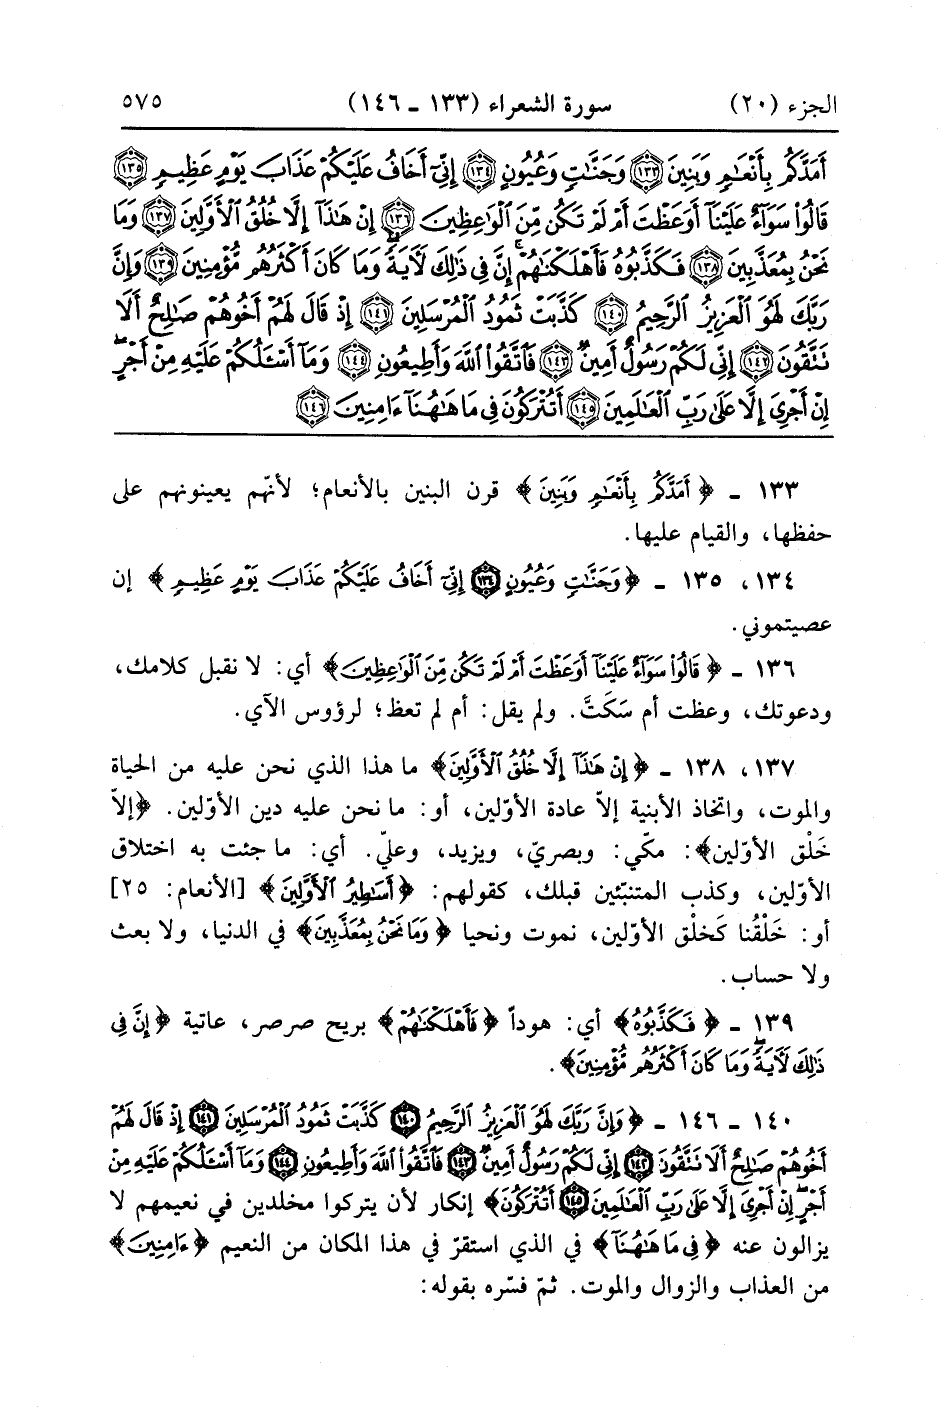 الجزء (٢٠) سورة الشعراء (١٣٣ ـ ١٤٦) ٥٧٥
أَمَدَّكُم بِأَنْعَٰمٍ وَبَنِينَ ١٣٣ وَجَنَّٰتٍ وَعُيُونٍ ١٣٤ إِنِّىٓ أَخَافُ عَلَيْكُمْ عَذَابَ يَوْمٍ عَظِيمٍ ١٣٥
قَالُوا۟ سَوَآءٌ عَلَيْنَآ أَوَعَظْتَ أَمْ لَمْ تَكُن مِّنَ ٱلْوَٰعِظِينَ ١٣٦ إِنْ هَٰذَآ إِلَّا خُلُقُ ٱلْأَوَّلِينَ ١٣٧ وَمَا
نَحْنُ بِمُعَذَّبِينَ ١٣٨ فَكَذَّبُوهُ فَأَهْلَكْنَٰهُمْ ۗ إِنَّ فِى ذَٰلِكَ لَءَايَةً ۖ وَمَا كَانَ أَكْثَرُهُم مُّؤْمِنِينَ ١٣٩ وَإِنَّ
رَبَّكَ لَهُوَ ٱلْعَزِيزُ ٱلرَّحِيمُ ١٤٠ كَذَّبَتْ ثَمُودُ ٱلْمُرْسَلِينَ ١٤١ إِذْ قَالَ لَهُمْ أَخُوهُمْ صَٰلِحٌ أَلَا
تَتَّقُونَ ١٤٢ إِنِّى لَكُمْ رَسُولٌ أَمِينٌ ١٤٣ فَٱتَّقُوا۟ ٱللَّهَ وَأَطِيعُونِ ١٤٤ وَمَآ أَسْـَٔلُكُمْ عَلَيْهِ مِنْ أَجْرٍ ۖ
إِنْ أَجْرِىَ إِلَّا عَلَىٰ رَبِّ ٱلْعَٰلَمِينَ ١٤٥ أَتُتْرَكُونَ فِى مَا هَٰهُنَآ ءَامِنِينَ ١٤٦
١٣٣ ـ ﴿أَمَدَّكُم بِأَنْعَٰمٍ وَبَنِينَ﴾ قرن البنين بالأنعام؛ لأنّهم يعينونهم على
حفظها، والقيام عليها.
١٣٤، ١٣٥ ـ ﴿وَجَنَّٰتٍ وَعُيُونٍ ١٣٤ إِنِّىٓ أَخَافُ عَلَيْكُمْ عَذَابَ يَوْمٍ عَظِيمٍ﴾ إن
عصيتموني.
١٣٦ ـ ﴿قَالُوا۟ سَوَآءٌ عَلَيْنَآ أَوَعَظْتَ أَمْ لَمْ تَكُن مِّنَ ٱلْوَٰعِظِينَ﴾ أي: لا نقبل كلامك،
ودعوتك، وعظت أم سَكَتَّ. ولم يقل: أم لم تعظ؛ لرؤوس الآي.
١٣٧، ١٣٨ ـ ﴿إِنْ هَٰذَآ إِلَّا خُلُقُ ٱلْأَوَّلِينَ﴾ ما هذا الذي نحن عليه من الحياة
والموت، واتخاذ الأبنية إلاّ عادة الأوّلين، أو: ما نحن عليه دين الأوّلين. ﴿إلاّ
خَلْق الأوّلين﴾: مكّي: وبصريّ، ويزيد، وعليّ. أي: ما جئت به اختلاق
الأوّلين، وكذب المتنبّئين قبلك، كقولهم: ﴿أَسَٰطِيرُ ٱلْأَوَّلِينَ﴾ [الأنعام: ٢٥]
أو: خَلْقُنا كَخلْق الأوّلين، نموت ونحيا ﴿وَمَا نَحْنُ بِمُعَذَّبِينَ﴾ في الدنيا، ولا بعث
ولا حساب.
١٣٩ ـ ﴿فَكَذَّبُوهُ﴾ أي: هوداً ﴿فَأَهْلَكْنَٰهُمْ﴾ بريح صرصر، عاتية ﴿إِنَّ فِى
ذَٰلِكَ لَءَايَةً ۖ وَمَا كَانَ أَكْثَرُهُم مُّؤْمِنِينَ﴾.
١٤٠ ـ ١٤٦ ـ ﴿وَإِنَّ رَبَّكَ لَهُوَ ٱلْعَزِيزُ ٱلرَّحِيمُ ١٤٠ كَذَّبَتْ ثَمُودُ ٱلْمُرْسَلِينَ ١٤١ إِذْ قَالَ لَهُمْ
أَخُوهُمْ صَٰلِحٌ أَلَا تَتَّقُونَ ١٤٢ إِنِّى لَكُمْ رَسُولٌ أَمِينٌ ١٤٣ فَٱتَّقُوا۟ ٱللَّهَ وَأَطِيعُونِ ١٤٤ وَمَآ أَسْـَٔلُكُمْ عَلَيْهِ مِنْ
أَجْرٍ ۖ إِنْ أَجْرِىَ إِلَّا عَلَىٰ رَبِّ ٱلْعَٰلَمِينَ ١٤٥ أَتُتْرَكُونَ﴾ إنكار لأن يتركوا مخلدين في نعيمهم لا
يزالون عنه ﴿فِى مَا هَٰهُنَآ﴾ في الذي استقرّ في هذا المكان من النعيم ﴿ءَامِنِينَ﴾
من العذاب والزوال والموت. ثمّ فسّره بقوله: